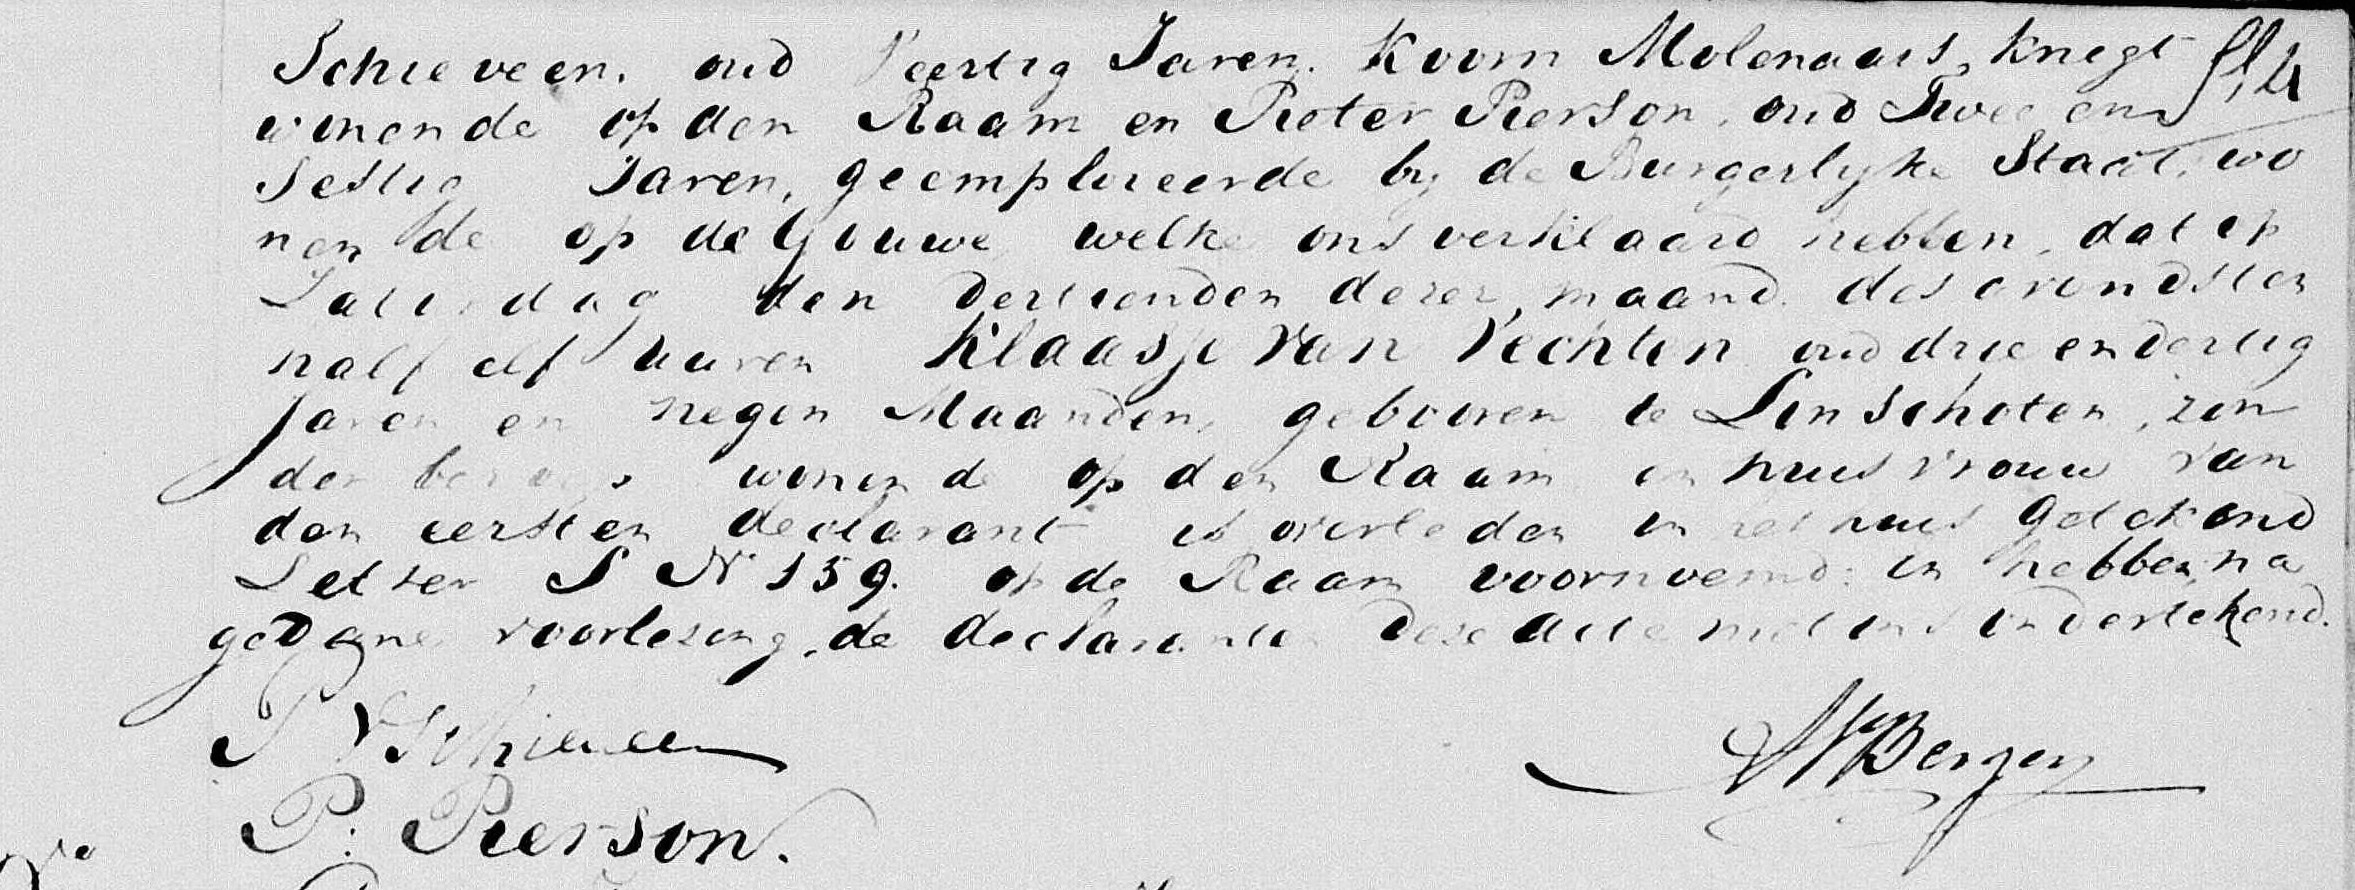 Schieveen, oud Veertig Jaren, Koorn Molenaars, Knegt
wonende op den Raam en Pieter Pierson, oud Twee en
sestig Jaren, geemploieerde by de Burgerlyke Staat, wo
nende op de Gouwe, welke ons verklaard hebben, dat op
Saturdag den dertienden dezer maand des avondsten
half elf uuren Klaasje van Vechten oud drie en dertig
Jaren en negen Maanden, gebooren te Linschoten, zon
der beroep wonende op den Raam en huisvrouw van
den eersten declarant is overleden in het huis getekend
Letter S N 159. op de Raam voornoemd: en hebben na
gedane voorlesing, de declaranten deze acte met ons ondertekend.
P V Schieveen
NvBergen
P. Pierson.